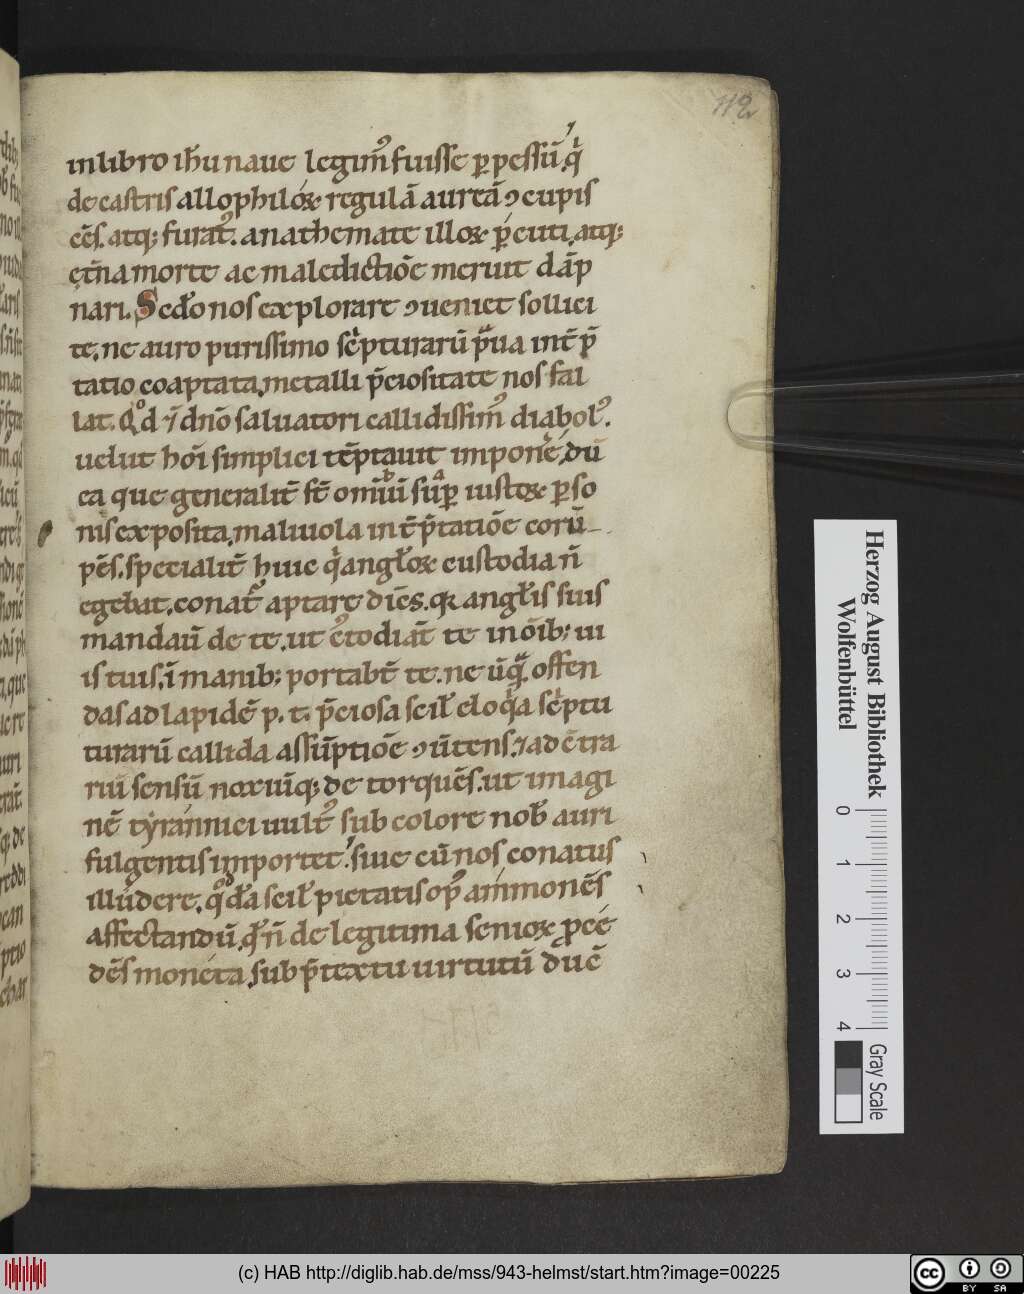 112
in libro ih̅u naue legim᷒ fuisse ꝑpessu̅, qͥ
de castris allophiloꝝ regula̅ aurea̅ ꝯcupis
ce̅s. atq; furat᷒. anathemate illoꝝ ꝑcuti, atq;
et̅na morte ac maledictio̅e meruit da̅p
nari. Sed ho nos explorare ꝯueniet sollici
te, ne auro purissimo scͥpturaru̅ pᷓua int̅p̅
tatio coaptata, metalli p̅ciositate nos fal
lat. Qͦd ⁊ i̅ dn̅o saluatori callidissim᷒ diabol᷒.
uelut ho̅i simplici te̅ptauit impone̅, du̅
ea que generalit̅ st̅ om̅ibu̅ suᷓꝑ iustoꝝ ꝑso
nis exposita, maliuola int̅p̅tatio̅e coru̅
pe̅s. specialit̅ huic qͥ angl̅oꝝ custodia n̅
egebat, conat᷒ aptare die̅s. qꝛ angl̅is suis
mandau̅ de te, ut c᷒todia̅t te in o̅ib; ui
is tuis, i̅ manib; portabt̅ te. ne u̅qᷓ offen
das ad lapide̅ p. t. p̅ciosa scil̅ eloqͥa scͥptu
turaru̅ callida assu̅ptio̅e ꝯu̅tens, ⁊ ad c̅tra
riu̅ sensu̅ noxiu̅q; de torque̅s. ut imagi
ne̅ tyrannici uult᷒ sub colore nob̅ auri
fulgentis importet. siue cu̅ nos conatus
illudere, qͦda̅ scil̅ pietatis op̅ ammone̅s
affectandu̅, qd̅ n̅ de legitima senioꝝ ꝓce
de̅s moneta, sub p̅textu uirtutu̅ duc̅
Herzog August Bibliothek
Wolfenbüttel
0 1 2 3 4
Gray Scale
(c) HAB http://diglib.hab.de/mss/943-helmst/start.htm?image=00225
cc BY SA